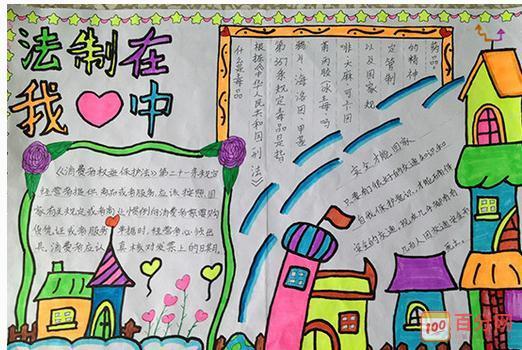 法制在
我 中
《消费者权益保护法》第二十一条规定
经营者提供商品或者服务,应该按照国
家有关规定或者商业惯例向消费者出具购
货凭证或者服务单据时,经营者必须出
具。消费者应认真核对发票上的日期、
什么是毒品
根据《中华人民共和国刑法》
第357条规定毒品是指
鸦片 海洛因 甲基
苯丙胺(冰毒)吗
啡 大麻 可卡因
以及国家规
定管制
的精神
药品。
安全才能回家
只要有很好的交通知识和
自我保护意识,才能
安全的交通,
百分网
100